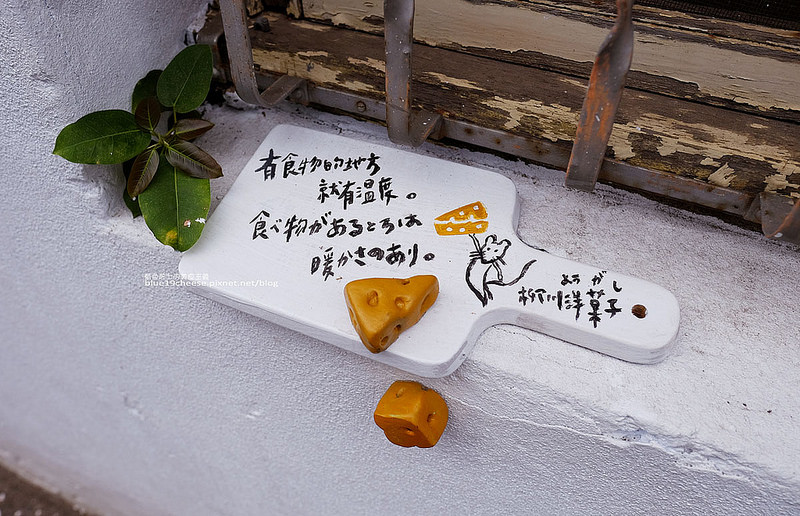 有食物的地方
就有温度。
食べ物があるところは
暖かさのあり。
ようがし
柳川洋菓子
blue19cheese.pixnet.net/blog